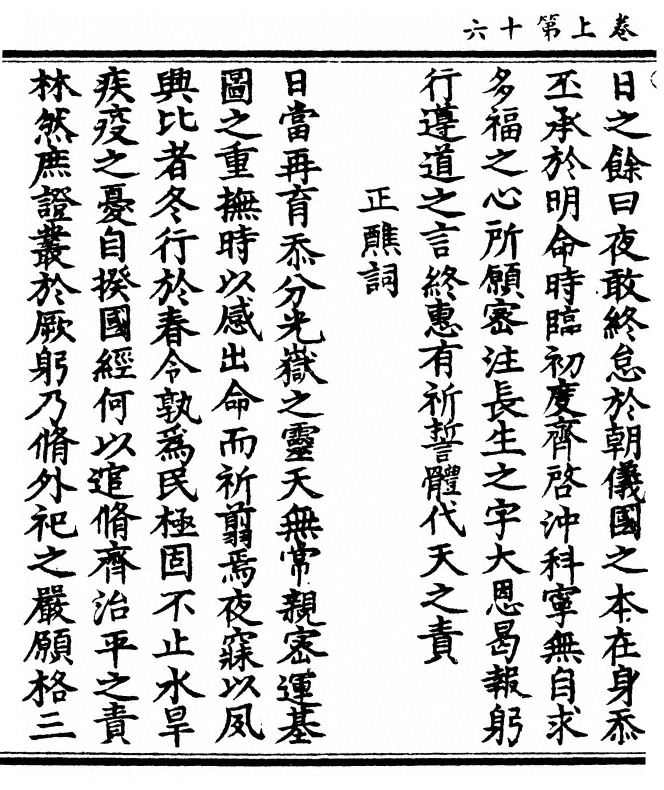 卷上第十六
日之餘曰夜敢終怠於朝儀國之本在身忝
丕承於明命時臨初度齊啓沖科寧無自求
多福之心所願密注長生之字大恩曷報躬
行遵道之言終惠有祈誓體代天之責
正醮詞
日當再育忝分光嶽之靈天無常親密運基
圖之重撫時以感出命而祈翦焉夜寐以夙
興比者冬行於春令孰爲民極固不止水旱
疾疫之憂自揆國經何以逭脩齊治平之責
林然庶證叢於厥躬乃脩外祀之嚴願格三